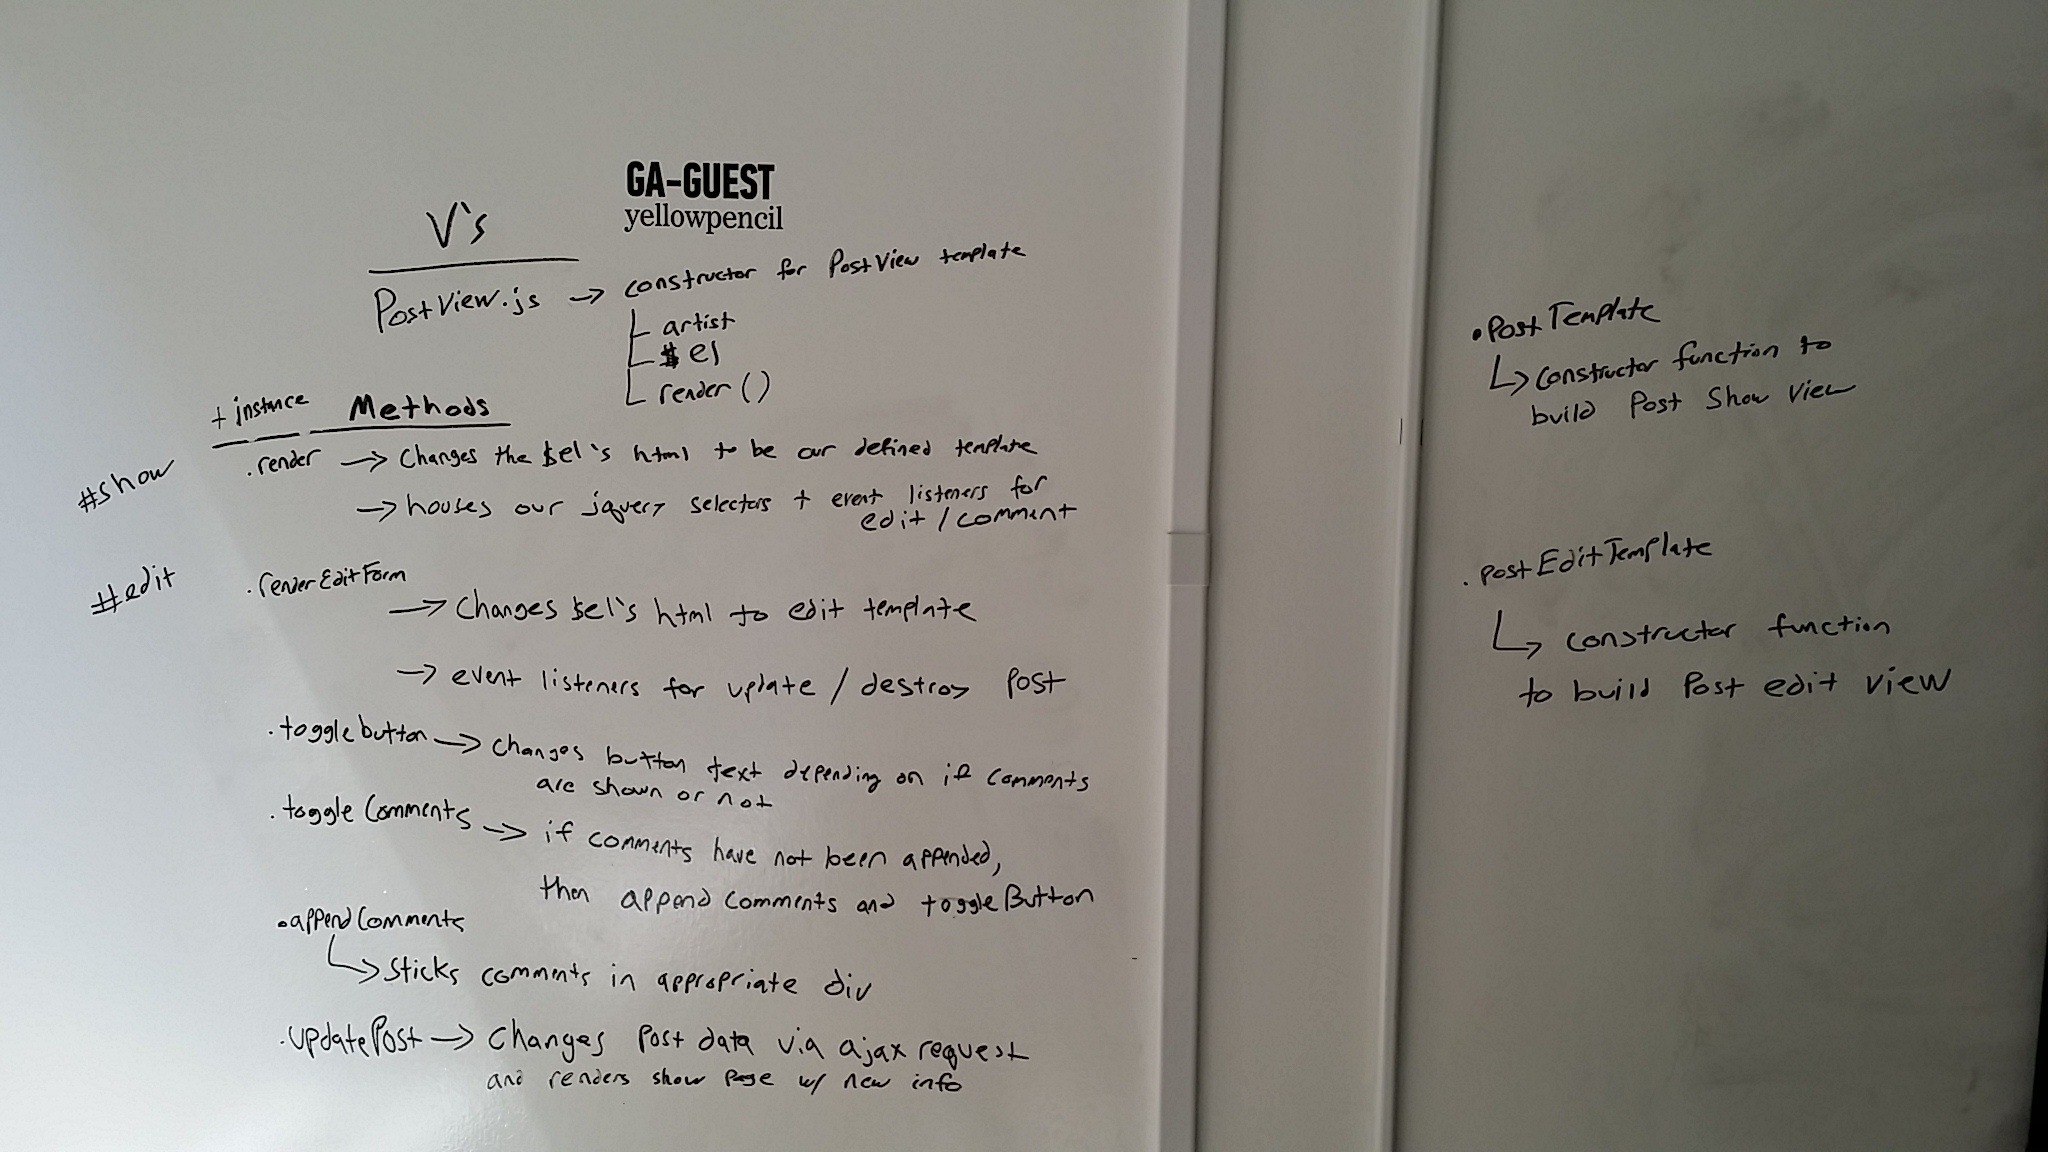 GA-GUEST
yellowpencil
V's
PostView.js → constructor for PostView template
artist
$el
render()
+ instance Methods
#show
.render → Changes the $el's html to be our defined template
→ houses our jquery selectors + event listeners for
edit / comment
#edit
.renderEditForm
→ Changes $el's html to edit template
→ event listeners for update / destroy Post
.togglebutton → changes button text depending on if comments
are shown or not
.toggleComments → if comments have not been appended,
then append comments and toggleButton
•appendComments
↳ Sticks comments in appropriate div
.updatePost → Changes Post data via ajax request
and renders show page w/ new info
•PostTemplate
↳ constructor function to
build Post Show View
.PostEditTemplate
↳ constructor function
to build Post edit view